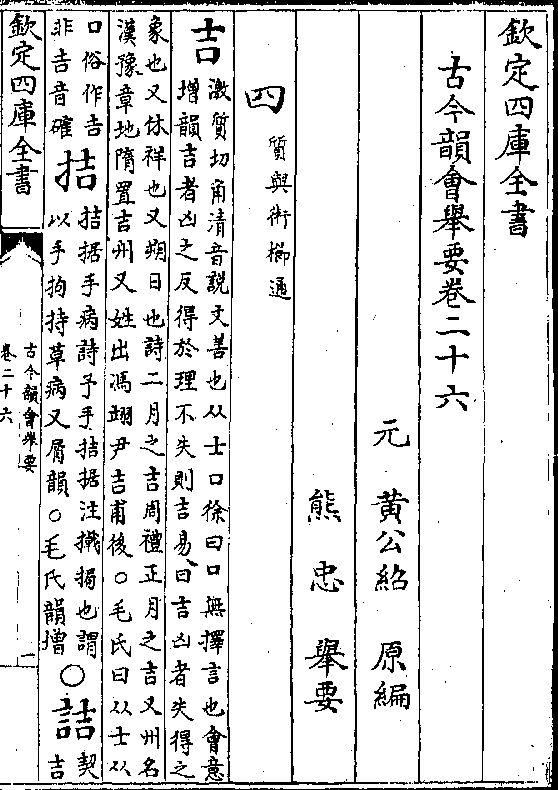 欽定四庫全書
古今韻會舉要卷二十六
元 黃公紹 原編
熊忠 舉要
四 質與術櫛通
吉 激質切角清音説文善也从士口徐曰口無擇言也會意
增韻吉者凶之反得於理不失則吉易曰吉凶者失得之
象也又休祥也又朔日也詩二月之吉周禮正月之吉又州名
漢豫章地隋置吉州又姓出馮翊尹吉甫後○毛氏曰从士从
口俗作吉
非吉音確
拮 拮据手病詩予手拮据注撠挶也謂
以手拘持草病又屑韻○毛氏韻增
○詰 契
吉
欽定四庫全書
古今韻會舉要
卷二十六
一